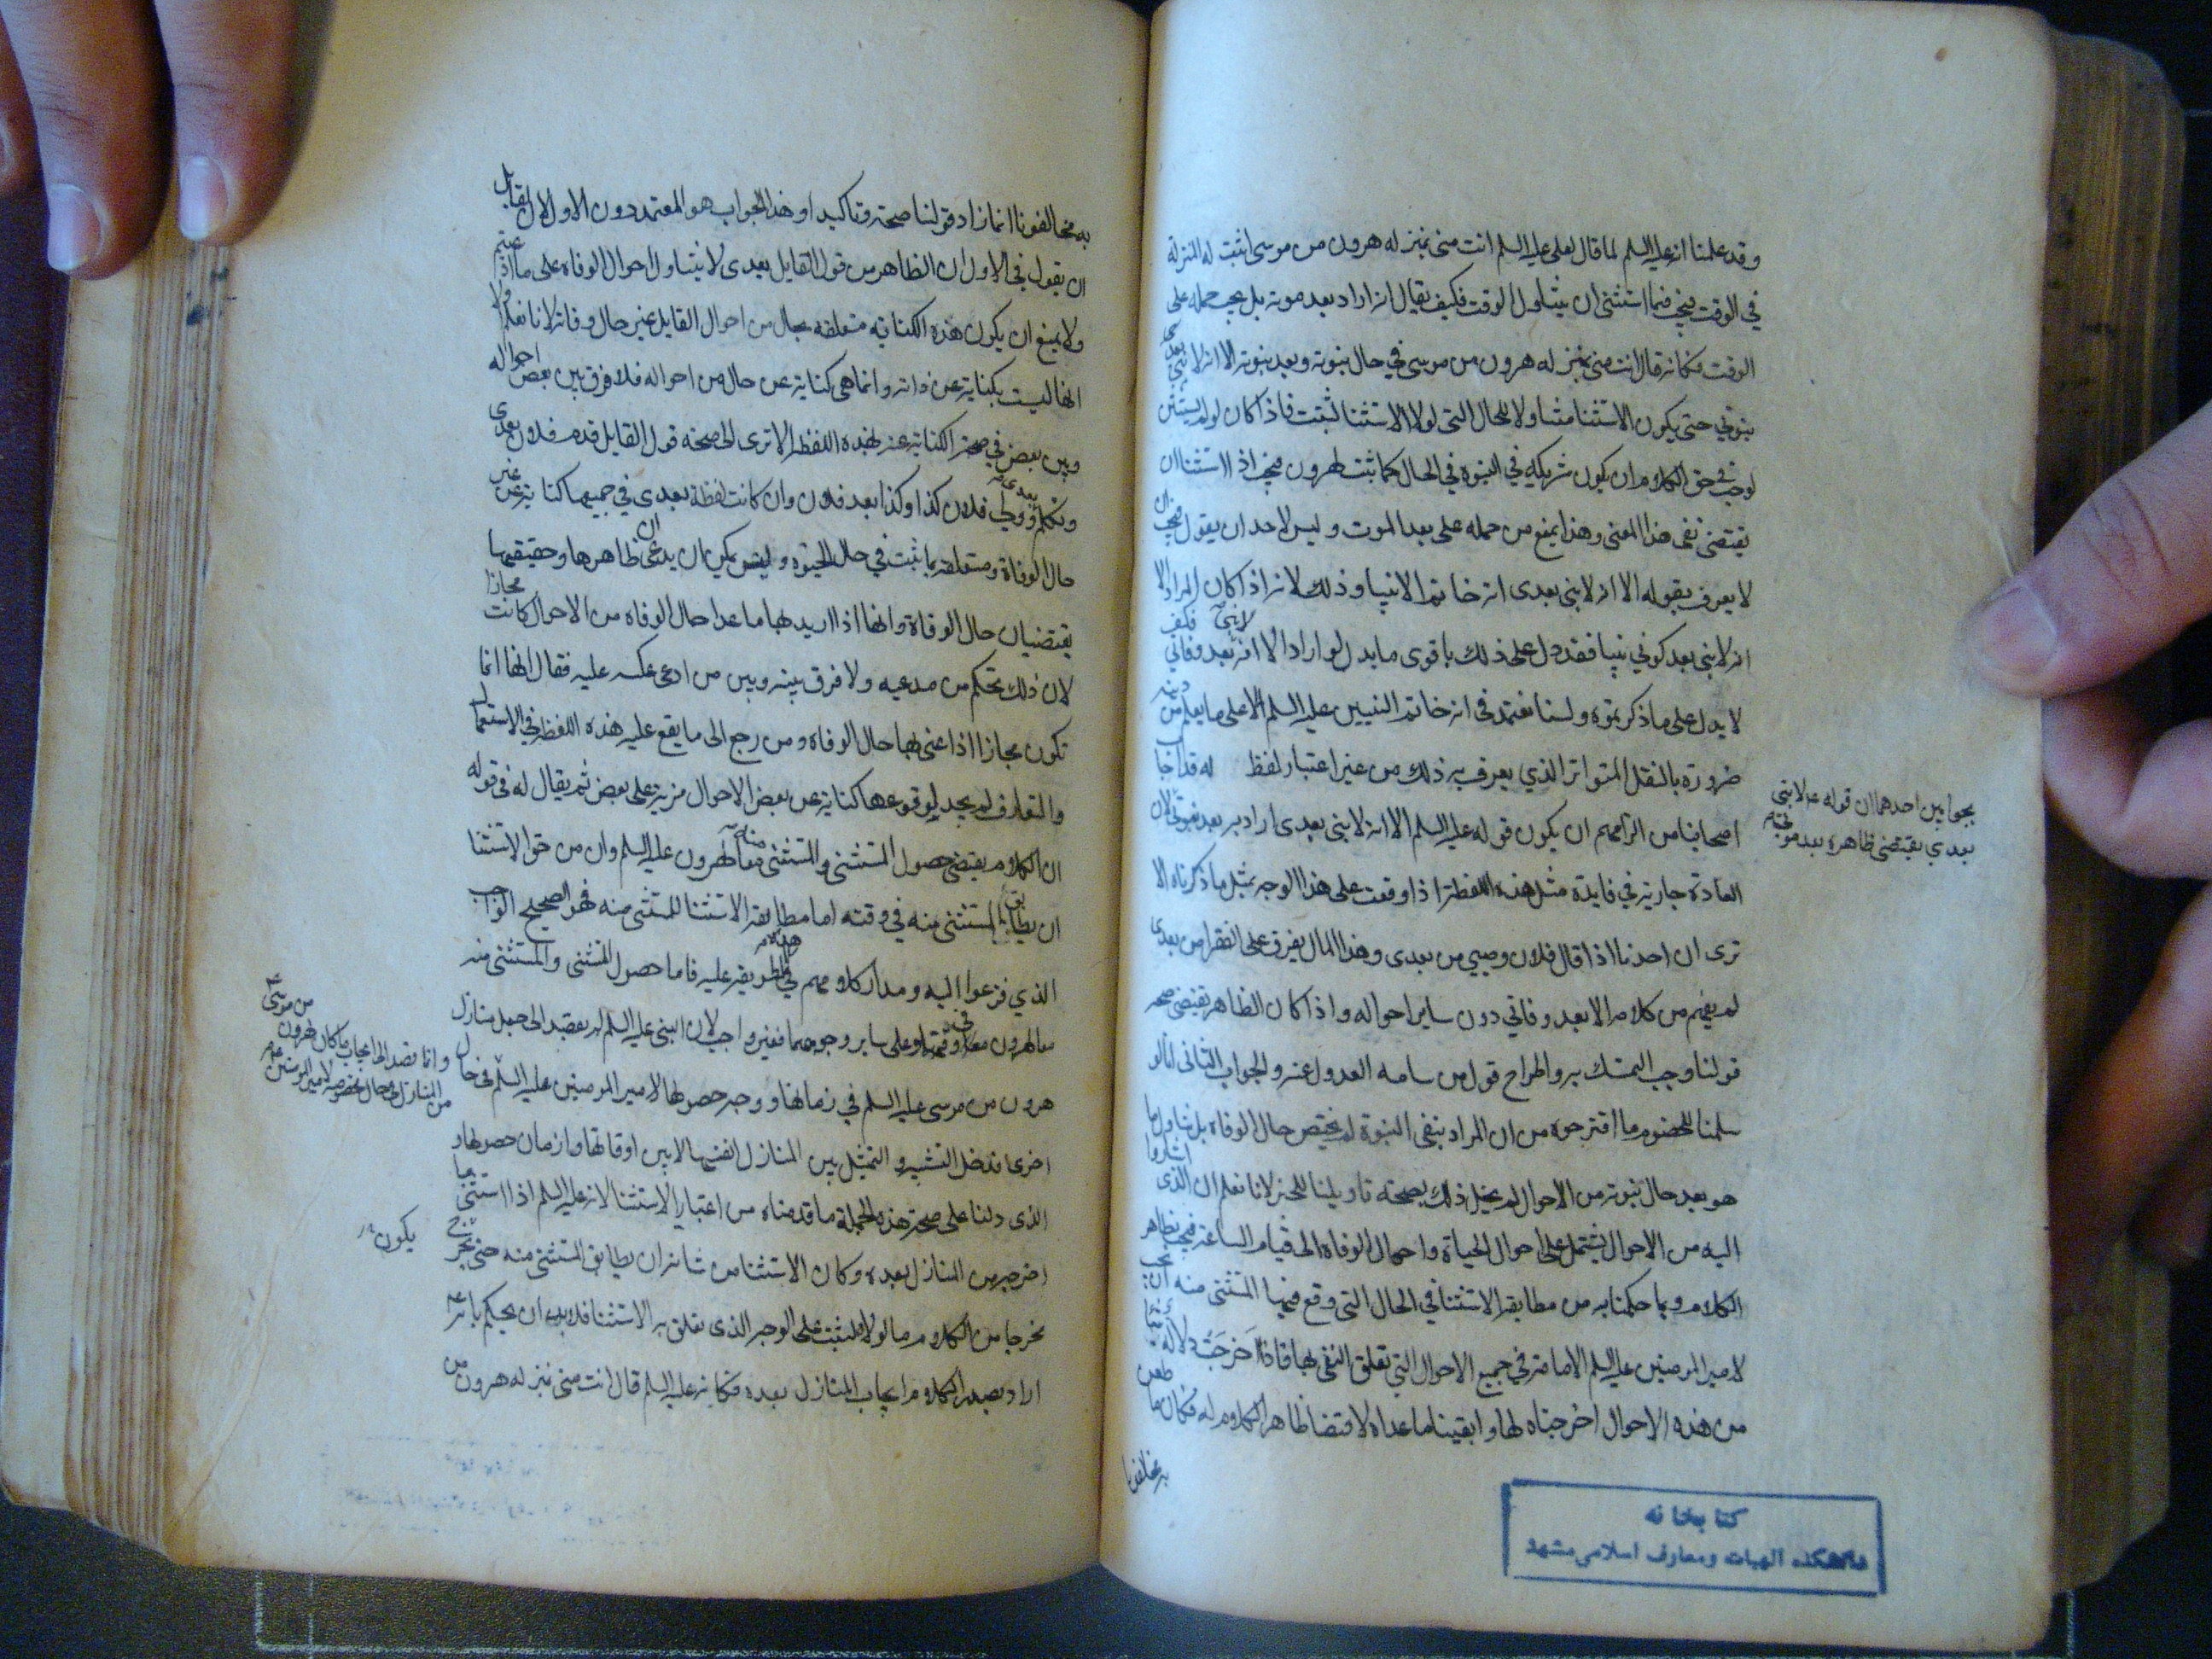 وقد علمنا انه عليه السلم لما قال لعلي عليه السلم انت مني بمنزله هرون من موسى اثبت له المنزلة
في الوقت فيجب فيما استثنى ان يتناول الوقت فكيف يقال انه اراد بعد موته بل يجب حمله على
الوقت فكانه قال انت مني بمنزله هرون من موسى في حال نبوته وبعد نبوته الا انه لا نبي بعدى
نبوتي حتى يكون الاستثنا متناولا للحال التي لولا الاستثنا لثبتت فاذا كان لو لم يستثن
لوجب في حق الكلام ان يكون شريكه في النبوه في الحال كما ثبت لهرون فيجب اذا استثنا ان
يقتضى نفى هذا المعنى وهذا يمنع من حمله على بعد الموت وليس لاحد ان يقول فيجب ان
لا يعرف بقوله الا انه لا نبى بعدى انه خاتم الانبيا وذلك لانه اذا كان المراد الا
انه لا نبى بعد كوني نبيا فقد دل على ذلك باقوى ما يدل لو اراد الا انه لا نبى بعد وفاتي فكيف
لا يدل على ما ذكرتموه ولسنا نعتمد في انه خاتم النبيين عليه السلم الا على ما يعلم من دينه
ضرورة بالنقل المتواتر الذي يعرف به ذلك من غير اعتبار لفظ له قد اجاب
اصحابنا من الزامهم ان يكون قوله عليه السلم الا انه لا نبى بعدى اراد به بعد نبوتي لان
العادة جارية في فايدة مثل هذه اللفظة اذا وقعت على هذا الوجه بمثل ما ذكرناه الا
ترى ان احدنا اذا قال فلان وصيي من بعدى وهذا المال يفرق على الفقرا من بعدى
لم يفهم من كلامه الا بعد وفاتي دون ساير احواله واذا كان الظاهر يقتضى صحه
قولنا وجب التمسك به واطراح قول من سامه العدول عنه والجواب الثانى انا لو
سلمنا للخصوم ما اقترحوه من ان المراد بنفى النبوة لم يختص حال الوفاه بل تناول ما
هو بعد حال نبوته من الاحوال لم يخل ذلك بصحة تاويلنا للخبر لانا نعلم ان الذى اشاروا
اليه من الاحوال يشتمل على احوال الحياة واحوال الوفاه الى قيام الساعة فيجب بظاهر
الكلام وبما حكمنا به من مطابقة الاستثنا في الحال التى وقع فيها المستثنى منه ان يجب
لامير المومنين عليه السلم الامامة في جميع الاحوال التي تعلق النفى بها فاذا اخرجت دلالة شيئا
من هذه الاحوال اخرجناه لها وابقينا ما عداه لاقتضا ظاهر الكلام له فكان ما طعن
به مخالفونا
بجوابين احدهما ان قوله ع لا نبى
بعدي يقتضى ظاهره بعد موتى
كتابخانه
دانشكده الهيات ومعارف اسلامى مشهد
به مخالفونا انما زاد قولنا صحة وتاكيدا وهذا الجواب هو المعتمد دون الاول لان لقايل
ان يقول في الاول ان الظاهر من قول القايل بعدى لا يتناول احوال الوفاه على ما ادعيتم
ولا يمنع ان يكون هذه الكناية متعلقه بحال من احوال القايل غير حال وفاته لانا نعلم
انها ليست بكناية عن ذاته وانما هى كناية عن حال من احواله فلا فرق بين بعض احواله
وبين بعض في صحة الكناية عنه بهذه اللفظه الا ترى الى صحه قول القايل قدم فلان بعدى
وتكلم بعدى وولي فلان كذا وكذا بعد فلان وان كانت لفظة بعدى في جميعها كناية عن غير
حال الوفاة ومتعلقه بما ثبت في حال الحيوه وليس يمكن ان يدعى ان ظاهرها وحقيقتها
يقتضيان حال الوفاة وانها اذا اريد بها ما عدا حال الوفاه من الاحوال كانت مجازا
لان ذلك تحكم من مدعيه ولا فرق بينه وبين من ادعى عكسه عليه فقال انها انما
تكون مجازا اذا عنى بها حال الوفاه ومن رجع الى ما يقع عليه هذه اللفظه في الاستعمال
والتعارف لم يجد لوقوعها كناية عن بعض الاحوال مزية على بعض ثم يقال له في قوله
ان الكلام يقتضى حصول المستثنى والمستثنى منه معا لهرون عليه السلم وان من حق الاستثنا
ان يطابق المستثنى منه في وقته اما مطابقة الاستثنا للمستثنى منه فهو الصحيح الواجب
الذي فزعوا اليه ومدار كلامهم في هذه الطريقه عليه فاما حصول المستثنى والمستثنى منه
معا لهرون معا في وقتها وعلى ساير وجوههما فغير واجب لان النبى عليه السلم لم يقصد الى جعل منازل
هرون من موسى عليه السلم في زمانها ووجه حصولها لامير المومنين عليه السلم في حال
اخرى فدخل التشبيه والتمثيل بين المنازل انفسها لا بين اوقاتها وازمان حصولها و
الذى دلنا على صحة هذه الجملة ما قدمناه من اعتبار الاستثنا لانه عليه السلم اذا استثنى ما
اخرجه من المنازل بعده وكان الاستثنا من شانه ان يطابق المستثنى منه حتى يخرج
مخرجا من الكلام ما لولاه لثبت على الوجه الذى تعلق به الاستثنا فلا بد ان يحكم بانه ع
اراد بصدر الكلام ايجاب المنازل بعده فكانه عليه السلم قال انت منى بمنزله هرون من
من موسى ع
وانما قصد الى ايجاب ما كان لهرون
من المنازل في حال مخصوصه لامير المومنين ع
يكون